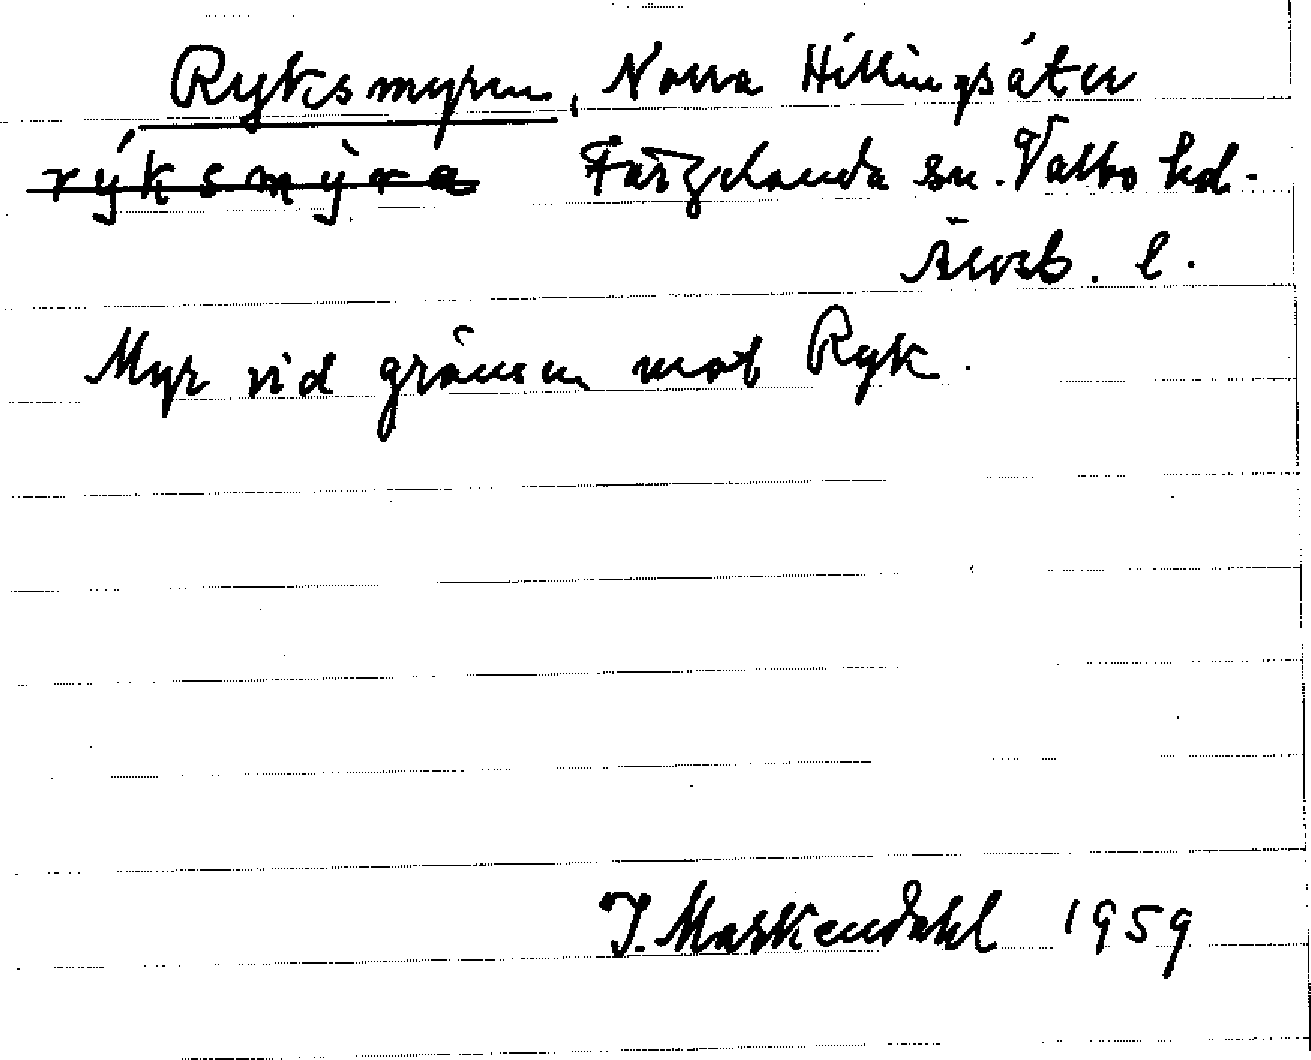 Ryksmyren, Norra Hillingsäter
rýksmỳra Färgelanda sn. Valbo hd.
Älvsb. l.
Myr vid gränsen mot Ryk.
J. Markendahl 1959